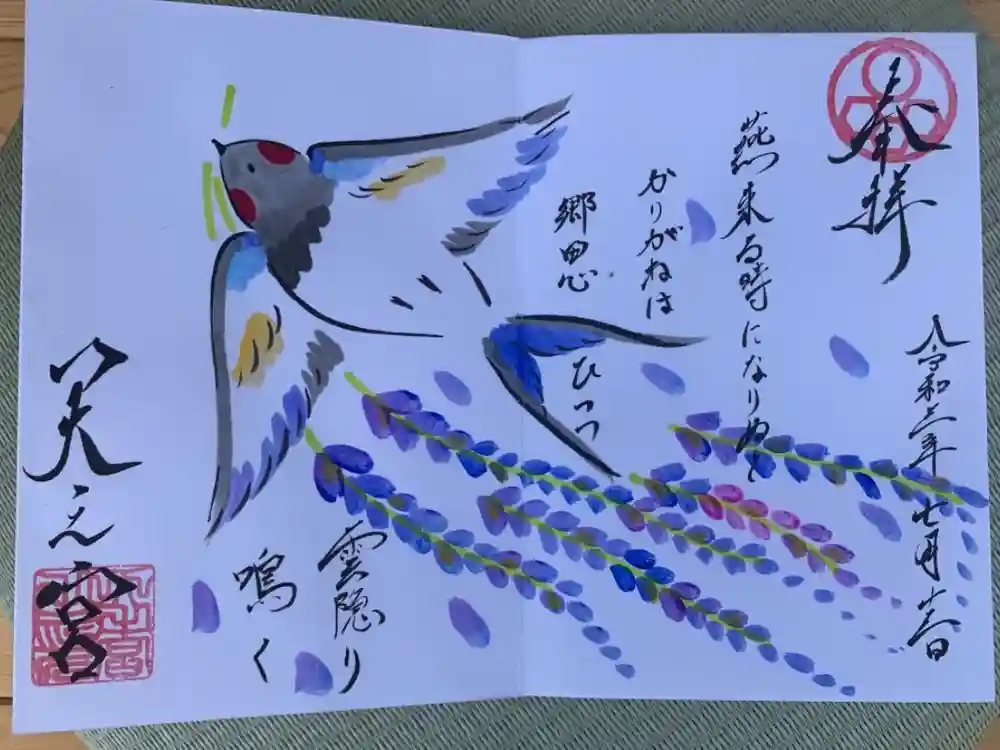 奉拝
令和三年七月十六日
燕来る時になりぬと
かりがねは
郷思ひつつ
雲隠り
鳴く
笑之宮